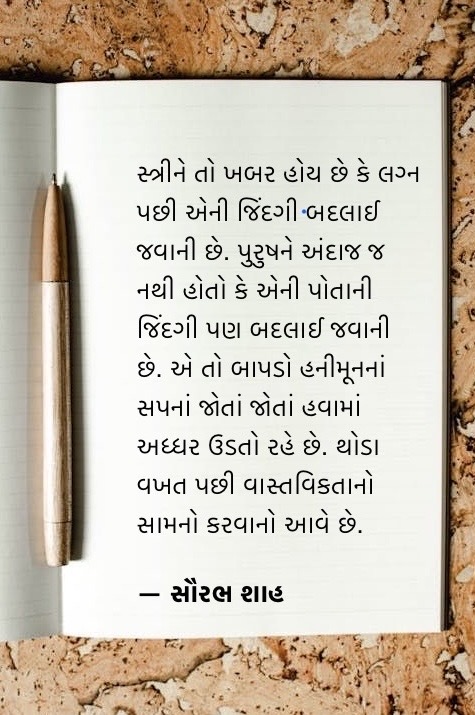 સ્ત્રીને તો ખબર હોય છે કે લગ્ન
પછી એની જિંદગી બદલાઈ
જવાની છે. પુરુષને અંદાજ જ
નથી હોતો કે એની પોતાની
જિંદગી પણ બદલાઈ જવાની
છે. એ તો બાપડો હનીમૂનનાં
સપનાં જોતાં જોતાં હવામાં
અધ્ધર ઉડતો રહે છે. થોડા
વખત પછી વાસ્તવિકતાનો
સામનો કરવાનો આવે છે.
— સૌરભ શાહ